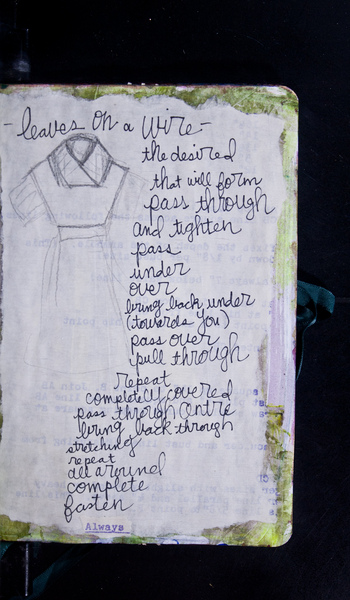 -leaves on a wire-
the desired
that will form
pass through
and tighten
pass
under
over
bring back under
(towards you)
pass over
pull through
repeat
completely covered
pass through centre
bring back through
stretching
repeat
all around
complete
fasten
Always